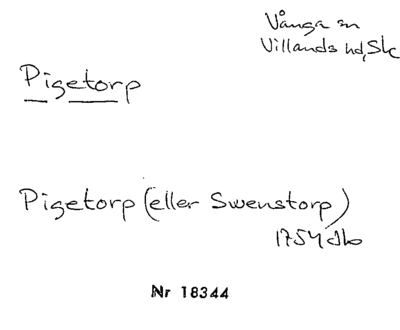 Vånga sn
Villands hd, Sk
Pigetorp
Pigetorp (eller Swenstorp)
1754 db
Nr 18344